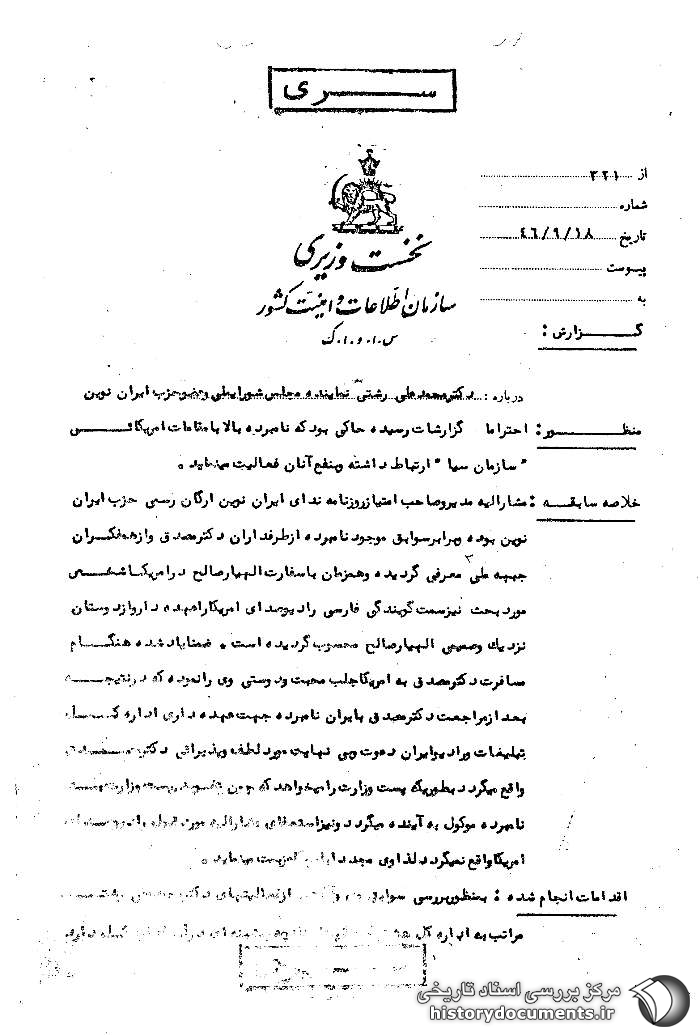 سری
از ۳۲۱
شماره
تاریخ ۴۶/۹/۱۸
پیوست
به
نخست وزیری
سازمان اطلاعات و امنیت کشور
س.ا.و.ا.ک
گزارش :
درباره : دکتر محمدعلی رشتی نماینده مجلس شورایملی و عضو حزب ایران نوین
منظور : احتراما گزارشات رسیده حاکی بود که نامبرده بالا با مقامات امریکائی
"سازمان سیا" ارتباط داشته و بنفع آنان فعالیت مینماید .
خلاصه سابقه : مشارالیه مدیر و صاحب امتیاز روزنامه ندای ایران نوین ارگان رسمی حزب ایران
نوین بوده و برابر سوابق موجود نامبرده از طرفداران دکتر مصدق و از همفکران
جبهه ملی معرفی گردیده و همزمان با سفارت الهیار صالح در امریکا شخص
مورد بحث نیز سمت گویندگی فارسی رادیو صدای امریکا را عهده دار و از دوستان
نزدیک و صمیمی الهیار صالح محسوب گردیده است . ضمنا یاد شده هنگام
مسافرت دکتر مصدق به امریکا جلب محبت و دوستی وی را نموده که در نتیجه
بعد از مراجعت دکتر مصدق بایران نامبرده جهت عهده داری اداره کل
تبلیغات و رادیو ایران دعوت و بی نهایت مورد لطف و پذیرائی دکتر
واقع میگردد بطوریکه پست وزارت را میخواهد که چون
نامبرده موکول به آینده میگردد و نیز استعفای مشارالیه مورد قبول
امریکا واقع نمیگردد لذا وی مجددا عزیمت مینماید .
اقدامات انجام شده : بمنظور بررسی سوابق از فعالیتهای دکتر
مراتب به اداره کل
مرکز بررسی اسناد تاریخی
historydocuments.ir